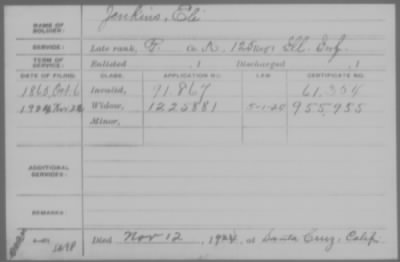 NAME OF SOLDIER: Jenkins, Eli
SERVICE: Late rank, P. Co. K, 125 Reg't Ill. Inf.
TERM OF SERVICE: Enlisted , 1 Discharged , 1
DATE OF FILING. CLASS. APPLICATION NO. LAW. CERTIFICATE NO.
1865, Oct. 6 Invalid, 91.867 61.304
1924, Nov. 28 Widow, 1225881 5-1-20 955,955
Minor,
ADDITIONAL SERVICES:
REMARKS:
Died Nov 12, 1924, at Santa Cruz, Calif.